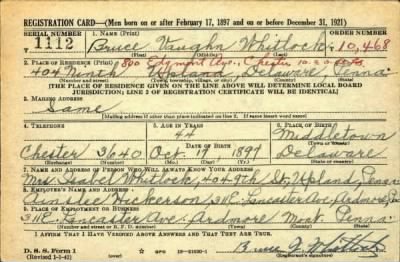 REGISTRATION CARD—(Men born on or after February 17, 1897 and on or before December 31, 1921)
SERIAL NUMBER 1. NAME (Print) ORDER NUMBER
1112 Bruce Vaughn Whitlock 10,468
(First) (Middle) (Last)
2. PLACE OF RESIDENCE (Print) 800 Edgmont Ave., Chester
404 Ninth Upland, Delaware, Penna
(Number and street) (Town, township, village, or city) (County) (State)
[THE PLACE OF RESIDENCE GIVEN ON THE LINE ABOVE WILL DETERMINE LOCAL BOARD
JURISDICTION; LINE 2 OF REGISTRATION CERTIFICATE WILL BE IDENTICAL]
3. MAILING ADDRESS
Same
[Mailing address if other than place indicated on line 2. If same insert word same]
4. TELEPHONE 5. AGE IN YEARS 6. PLACE OF BIRTH
44 Middletown
DATE OF BIRTH (Town or county)
Chester 3/640 Oct. 17 1897 Delaware
(Exchange) (Number) (Mo.) (Day) (Yr.) (State or country)
7. NAME AND ADDRESS OF PERSON WHO WILL ALWAYS KNOW YOUR ADDRESS
Mrs. Isabel Whitlock, 404 9th St., Upland, Penna
8. EMPLOYER'S NAME AND ADDRESS
Ainslee Hickerson, 311 E. Lancaster Ave. Ardmore,
9. PLACE OF EMPLOYMENT OR BUSINESS
311 E. Lancaster Ave. Ardmore Mont. Penna.
(Number and street or R. F. D. number) (Town) (County) (State)
I AFFIRM THAT I HAVE VERIFIED ABOVE ANSWERS AND THAT THEY ARE TRUE.
D. S. S. Form 1
(Revised 1-1-42) GPO 16—21630-1 Bruce V. Whitlock